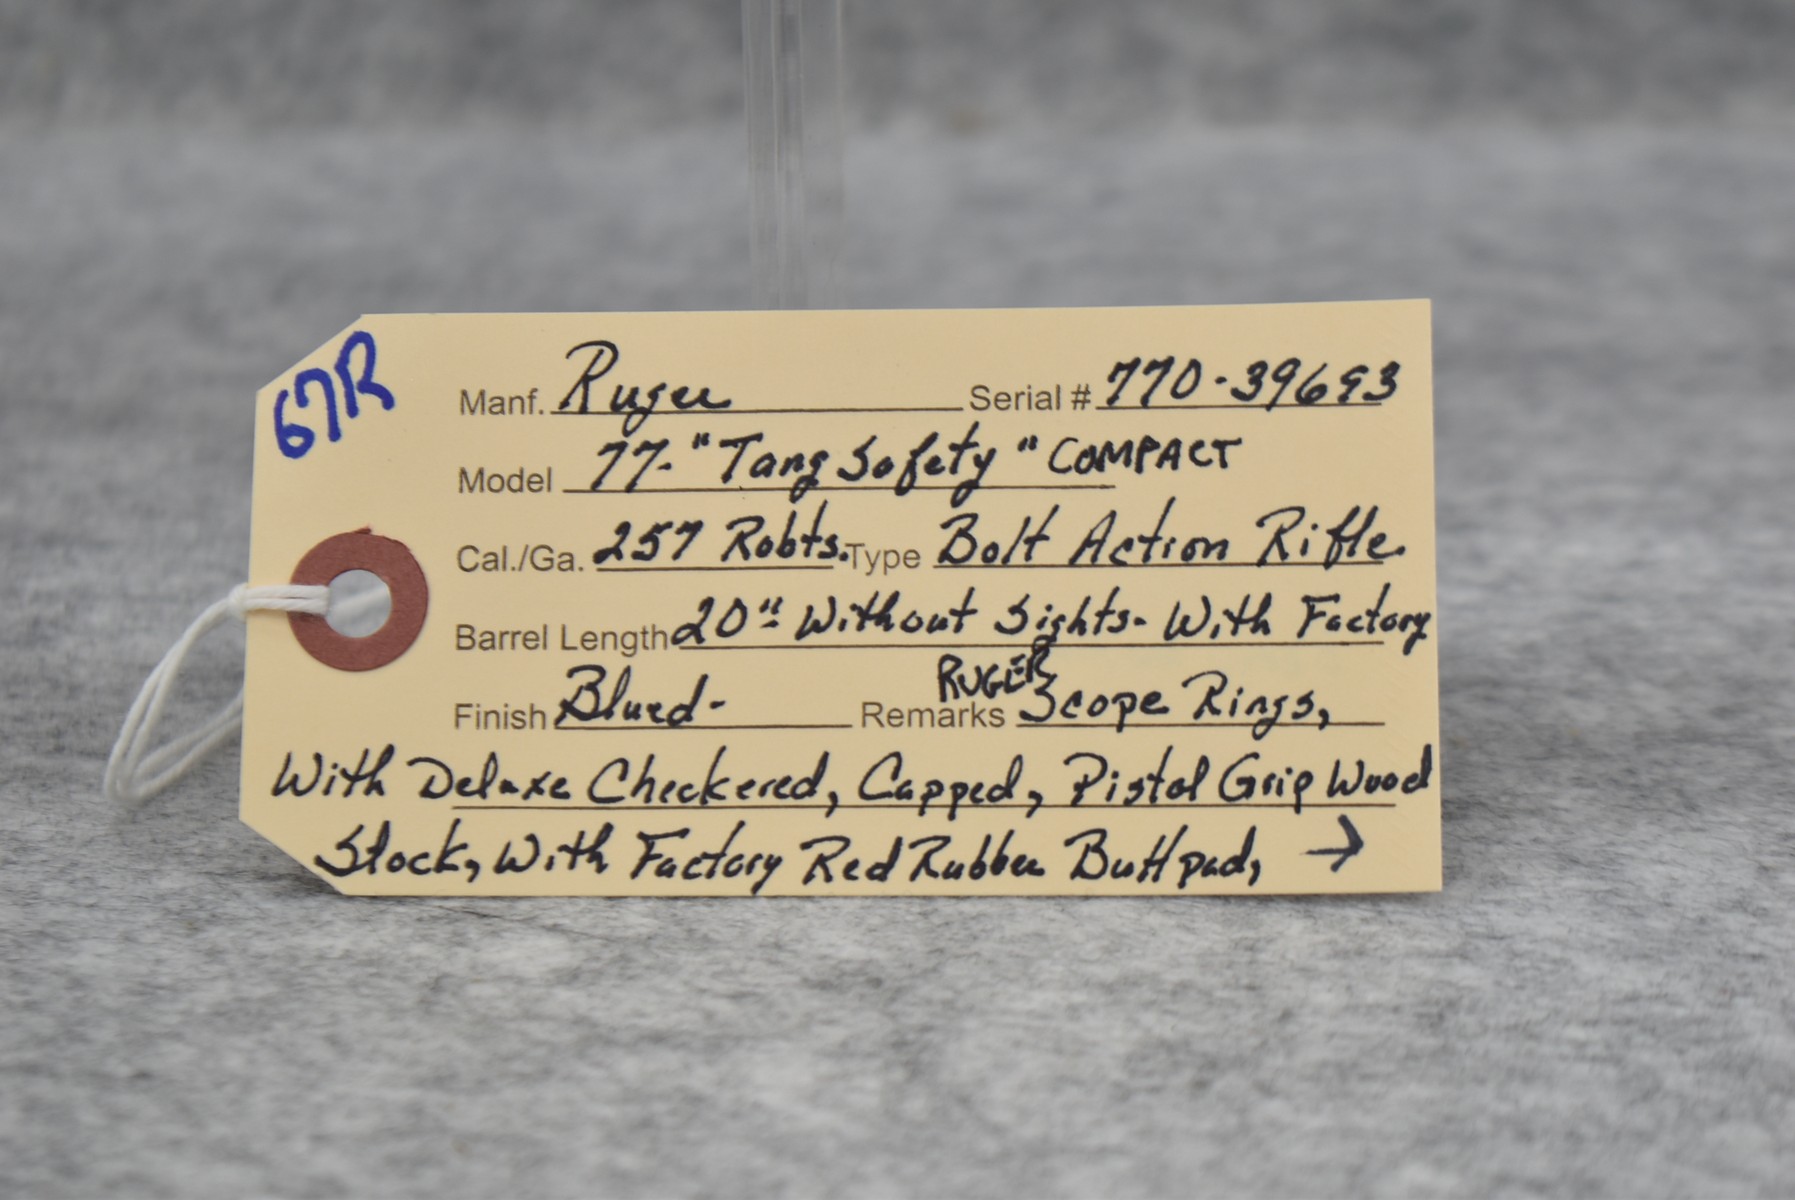 67R
Manf. Ruger Serial # 770-39693
Model 77-"Tang Safety" COMPACT
Cal./Ga. 257 Robts. Type Bolt Action Rifle.
Barrel Length 20" Without Sights- With Factory
Finish Blued- Remarks RUGER Scope Rings,
With Deluxe Checkered, Capped, Pistol Grip Wood
Stock, With Factory Red Rubber Buttpad, →